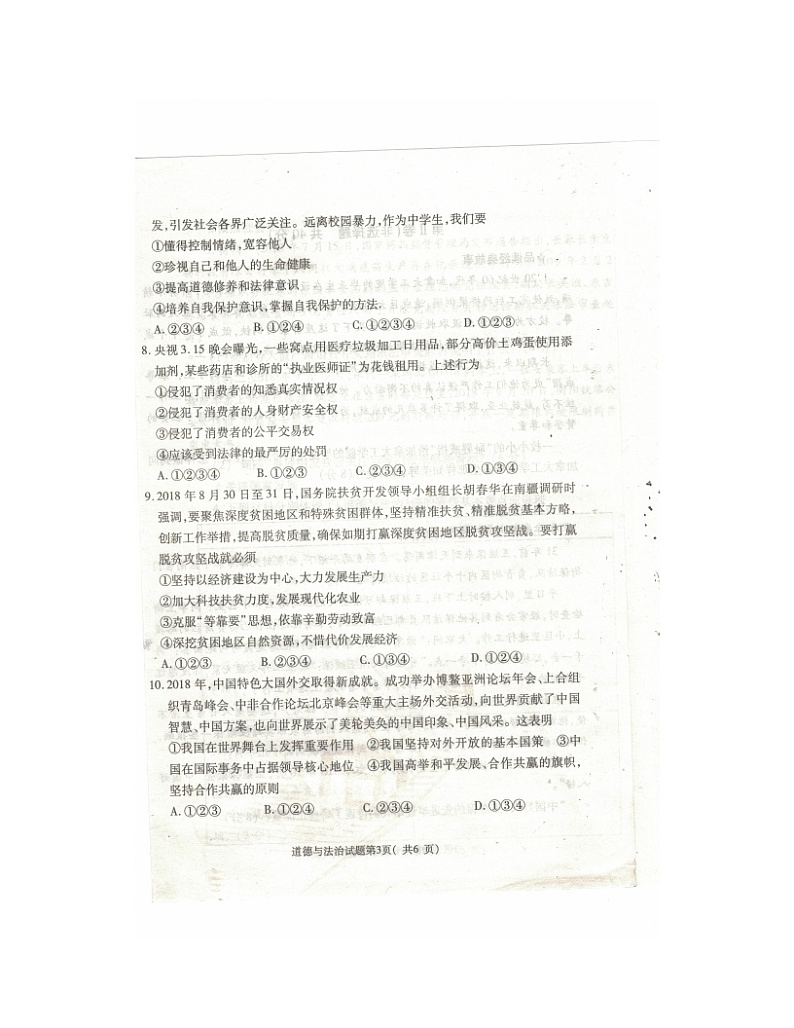 发,引发社会各界广泛关注。远离校园暴力,作为中学生,我们要
①懂得控制情绪,宽容他人
②珍视自己和他人的生命健康
③提高道德修养和法律意识
④培养自我保护意识,掌握自我保护的方法.
A.②③④ B.①②④ C.①②③④ D.①②③
8. 央视 3.15 晚会曝光,一些窝点用医疗垃圾加工日用品,部分高价土鸡蛋使用添
加剂,某些药店和诊所的“执业医师证”为花钱租用。上述行为
①侵犯了消费者的知悉真实情况权
②侵犯了消费者的人身财产安全权
③侵犯了消费者的公平交易权
④应该受到法律的最严厉的处罚
A.①②③④ B.①②③ C.②③④ D.①③④
9. 2018 年 8 月 30 日至 31 日,国务院扶贫开发领导小组组长胡春华在南疆调研时
强调,要聚焦深度贫困地区和特殊贫困群体,坚持精准扶贫、精准脱贫基本方略,
创新工作举措,提高脱贫质量,确保如期打赢深度贫困地区脱贫攻坚战。要打赢
脱贫攻坚战就必须
①坚持以经济建设为中心,大力发展生产力
②加大科技扶贫力度,发展现代化农业
③克服“等靠要”思想,依靠辛勤劳动致富
④深挖贫困地区自然资源,不惜代价发展经济
A.①②③ B.②③④ C.①③④ D.①②④
10. 2018 年,中国特色大国外交取得新成就。成功举办博鳌亚洲论坛年会、上合组
织青岛峰会、中非合作论坛北京峰会等重大主场外交活动,向世界贡献了中国
智慧、中国方案,也向世界展示了美轮美奂的中国印象、中国风采。这表明
①我国在世界舞台上发挥重要作用 ②我国坚持对外开放的基本国策 ③中
国在国际事务中占据领导核心地位 ④我国高举和平发展、合作共赢的旗帜,
坚持合作共赢的原则
A.①②③ B.①②④ C.②③④ D.①③④
道德与法治试题第3页( 共6 页)